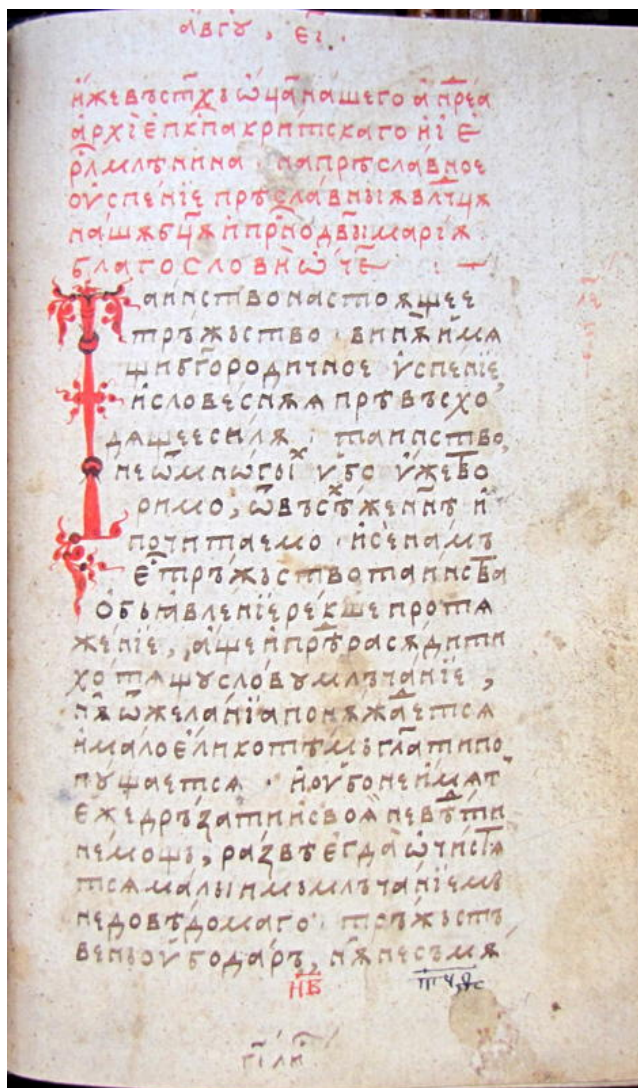 а҆вгꙋ, є҃і.
и҆же въ ст҃хъ ѡ҆ца҃ нашего а҆нⷣреа
а҆рхїе҆пⷭ҇кпа критскаго и҆ і҆е
рⷭ҇лмлѣнина · на прѣславное
ᲂу҆спенїе прѣславныѧ влⷣцѧ
нашѫ бц҃ѫ и҆ приⷭ҇нодв҃ы марїѧ
благослови ѡ҆ч҃е
Таинство настоѧщее
тръжьство · вина и҆мѧ
щи бг҃ородичное ѵ҆спенїе,
и҆ словеснѫѧ прѣвъсхо
дѧщее силѧ · таинство,
не ѿ мнѡгыⷯ ѵ҆бо ѵ҆же тво
римо, ѿ въсѣⷯ же
почитаемо · и҆ се намъ
є҆ⷭ҇ тръжьство таинства
ѡбьꙗвленїе рекше протѧ
женїе, а҆ще и҆ прѣрасѫдити
хотѧщꙋ словꙋ млъчанїе,
нѫ ѿ желанїа понѫжⷣаетсѧ
и҆ мало є҆лико тѣмь гл҃ати по
пꙋщаетсѧ · и҆ ᲂу҆бо не и҆мѧт
єже дръзати и҆ своꙗ
не мощь, развѣ є҆гда ѡ҆чистѧ
тсѧ малыимь млъчанїемь
недовѣдомаго · тръжьст
веныи ᲂу҆бо даръ, нѫ несъмѧ
н҃в
г҃і лиⷭ҇